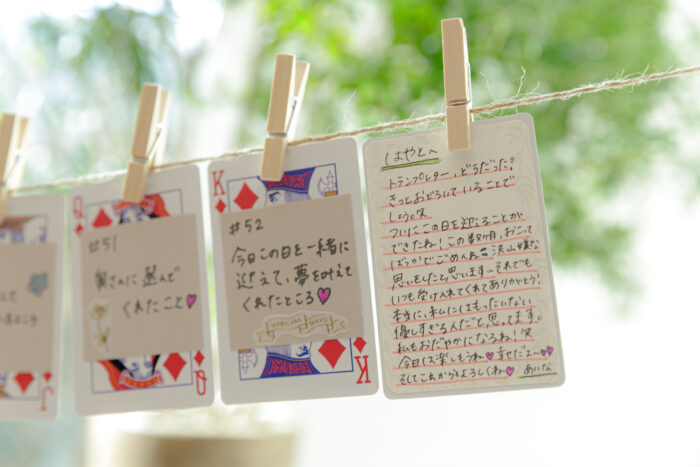 J
Q
#51
奥さんに選んで
くれたこと
Q
K
#52
今日この日を一緒に
迎えて、夢を叶えて
くれたところ
SPECIAL DAYS
K
はやとへ
トランプレター、どうだった?
きっとおどろいていることで
しょう。笑
ついにこの日を迎えることが
できたね!この数ヶ月、おこって
ばっかでごめんね。沢山嫌な
思いをしたと思います…それでも
いつも受け入れてくれてありがとう!
本当に、私にはもったいない
優しすぎる人だと思ってます。
私もおだやかになるね!笑
今日は楽しもうね 幸せだよー
そしてこれからもよろしくね あいな